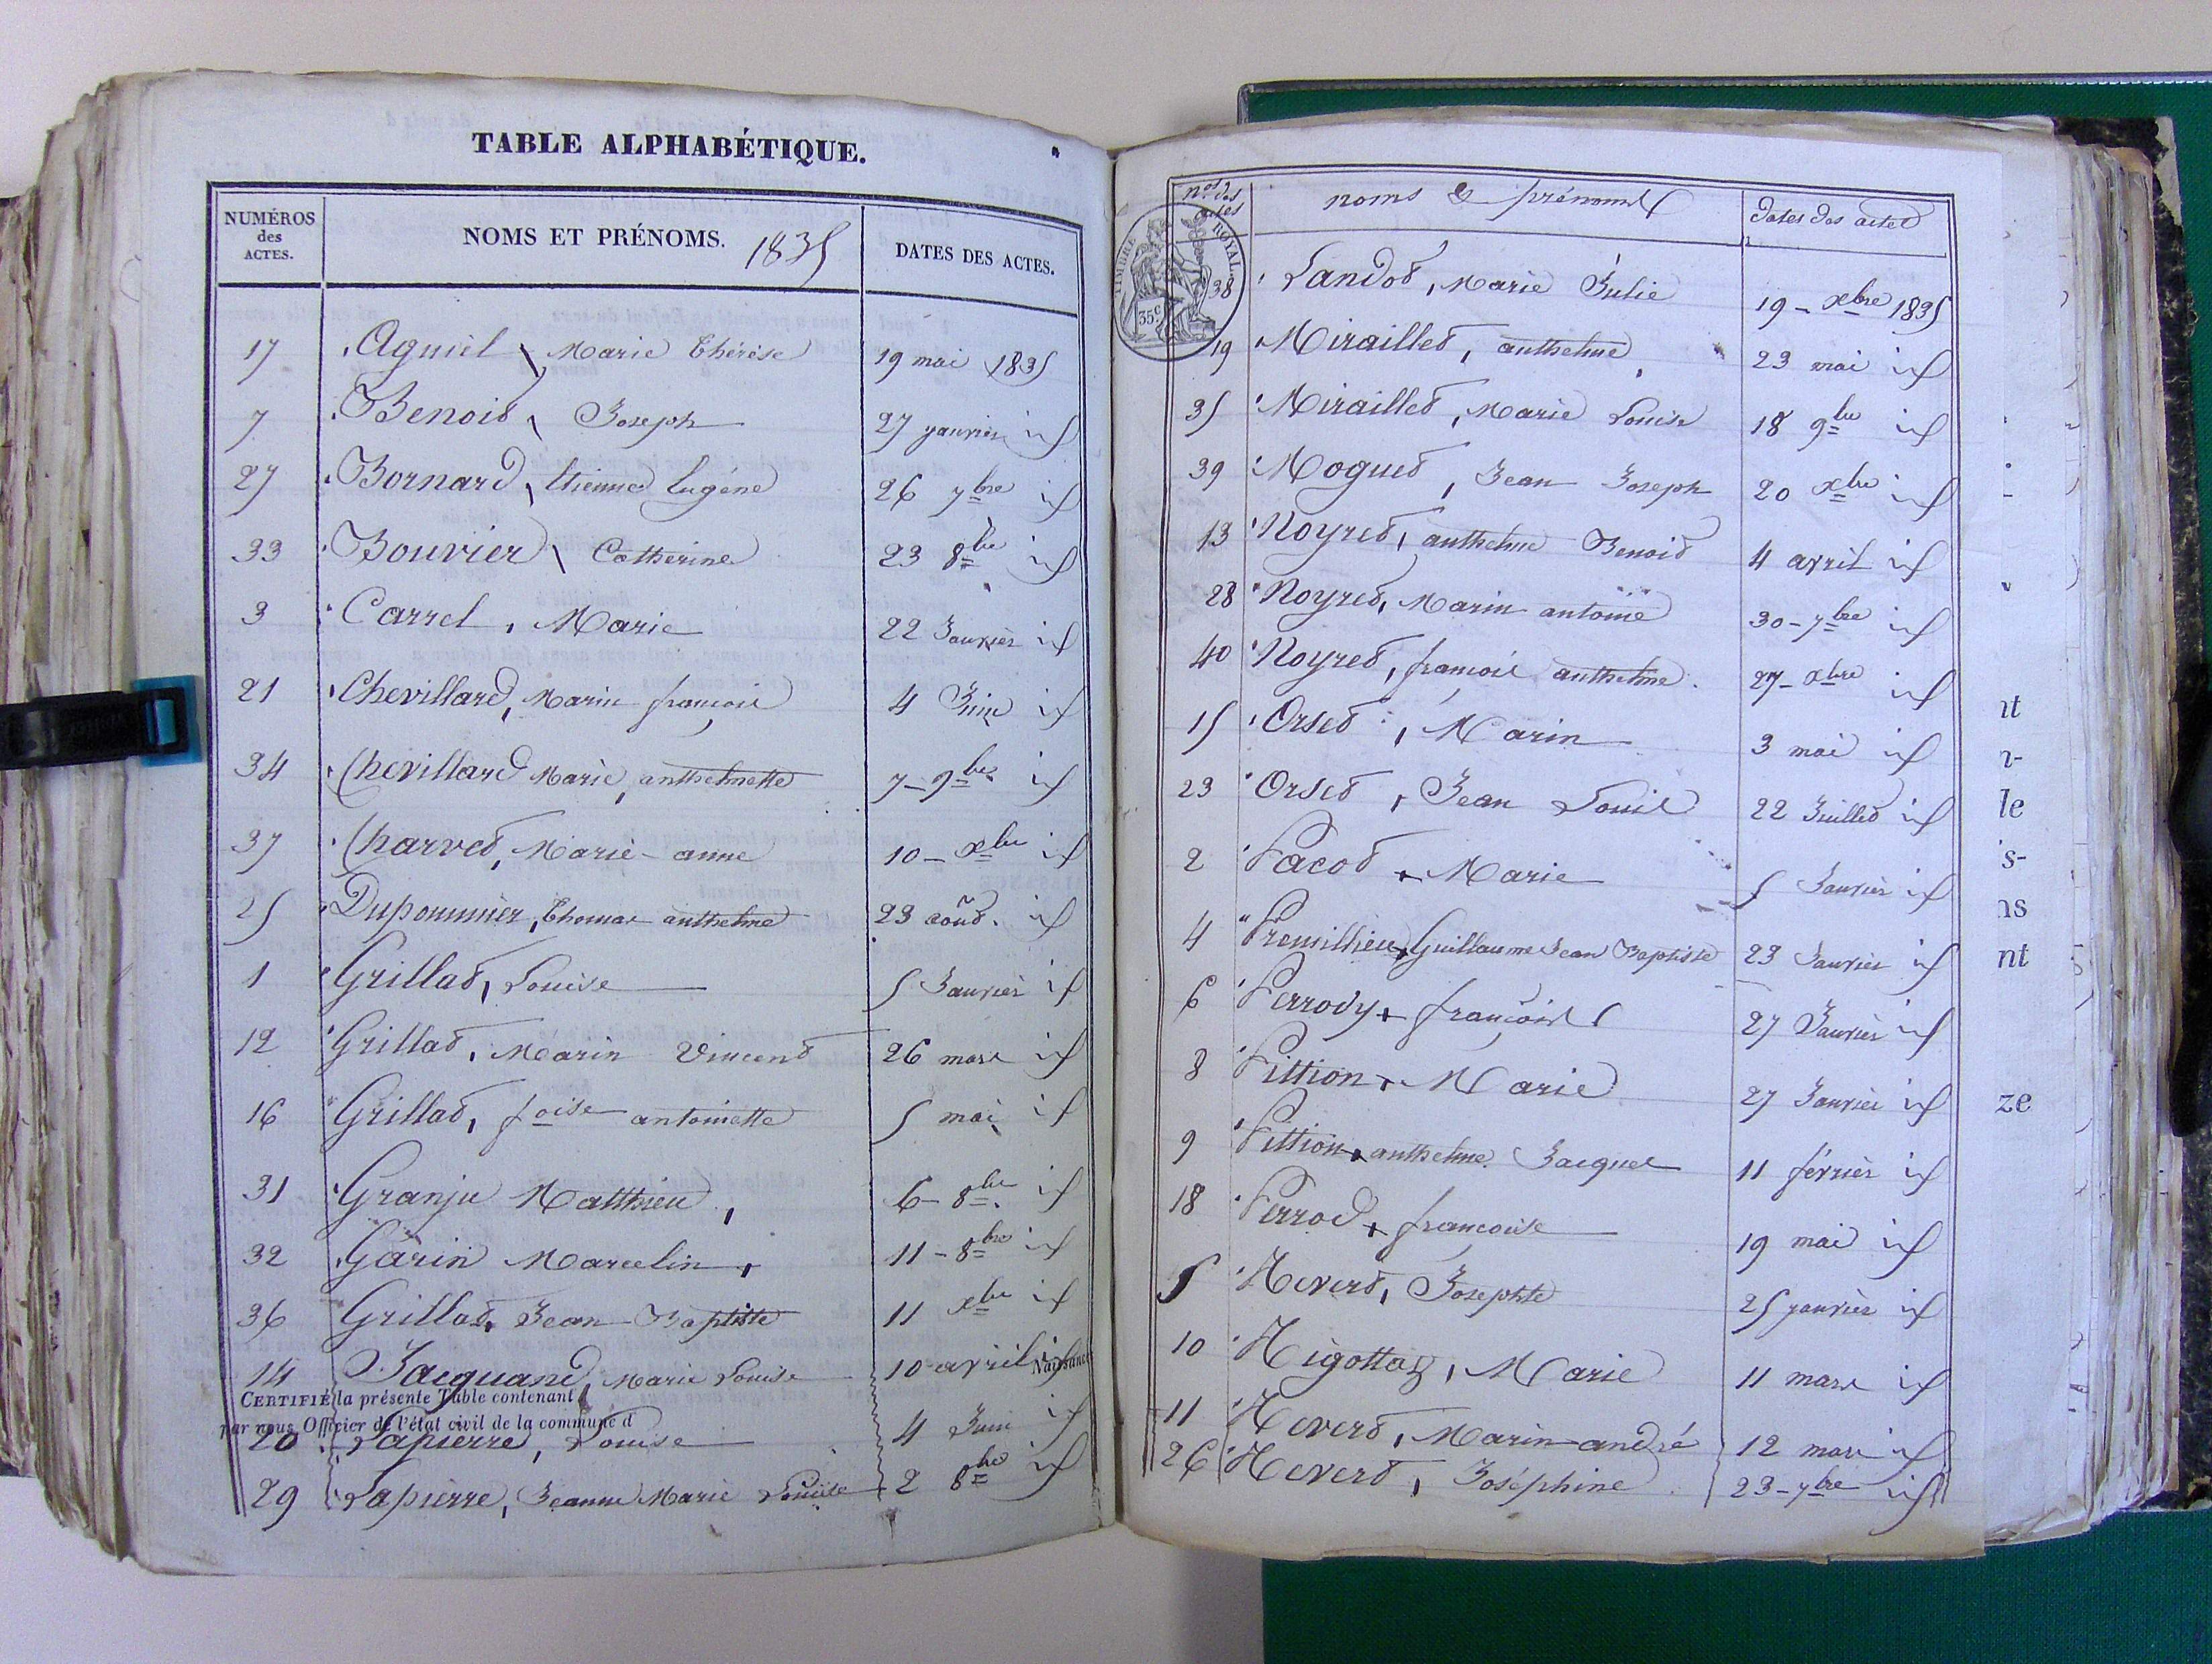 TABLE ALPHABÉTIQUE.
NUMÉROS des ACTES. NOMS ET PRÉNOMS. 1835 DATES DES ACTES.
17 Agniel, Marie Thérèse 19 mai 1835
7 Benoit, Joseph 27 janvier id
27 Bornard, Etienne Eugène 26 7bre id
33 Bouvier, Catherine 23 8bre id
3 Carrel, Marie 22 Janvier id
21 Chevillard, Marin françois 4 Juin id
34 Chevillard Marie, anthelmette 7 - 9bre id
37 Charvet, Marie - anne 10 - xbre id
25 Dupommier, Thomas anthelme 23 août. id
1 Grillat, Louise 5 Janvier id
12 Grillat, Marin Vincent 26 mars id
16 Grillat, foise antoinette 5 mai id
31 Granju Matthieu, 6 - 8bre. id
32 Garin Marcelin, 11 - 8bre id
36 Grillat, Jean - Baptiste 11 xbre id
14 Jacquand, Marie Louise 10 avril id
Naissances
CERTIFIÉ la présente Table contenant
par nous Officier de l'état civil de la commune d
20 Lapierre, Louise 4 Juin id
29 Lapierre, Jeanne Marie Louise 2 8bre id
nos des actes noms & prénoms dates des actes
TIMBRE ROYAL
35 c
38 Landot, Marie Julie 19 - xbre 1835
19 Miraillet, anthelme, 23 mai id
35 Miraillet, Marie Louise 18 9bre id
39 Moguet, Jean Joseph 20 xbre id
13 Noyret, anthelme Benoit 4 avril id
28 Noyret, Marin antoine 30 - 7bre id
40 Noyret, françois anthelme. 27 - xbre id
15 Orset, Marin 3 mai id
23 Orset, Jean Louis 22 Juillet id
2 Pacot, Marie 5 Janvier id
4 Guillaume Jean Baptiste 23 Janvier id
6 Perrody, françois 27 Janvier id
8 Pittion, Marie 27 Janvier id
9 Pittion, anthelme Jacques 11 février id
18 Perrod, françoise 19 mai id
5 Revert, Josephte 25 janvier id
10 Rigottaz, Marie 11 mars id
11 Revert, Marin - andré 12 mars id
26 Revert, Joséphine 23 - 7bre id
nt
le
s-
ns
nt
ze